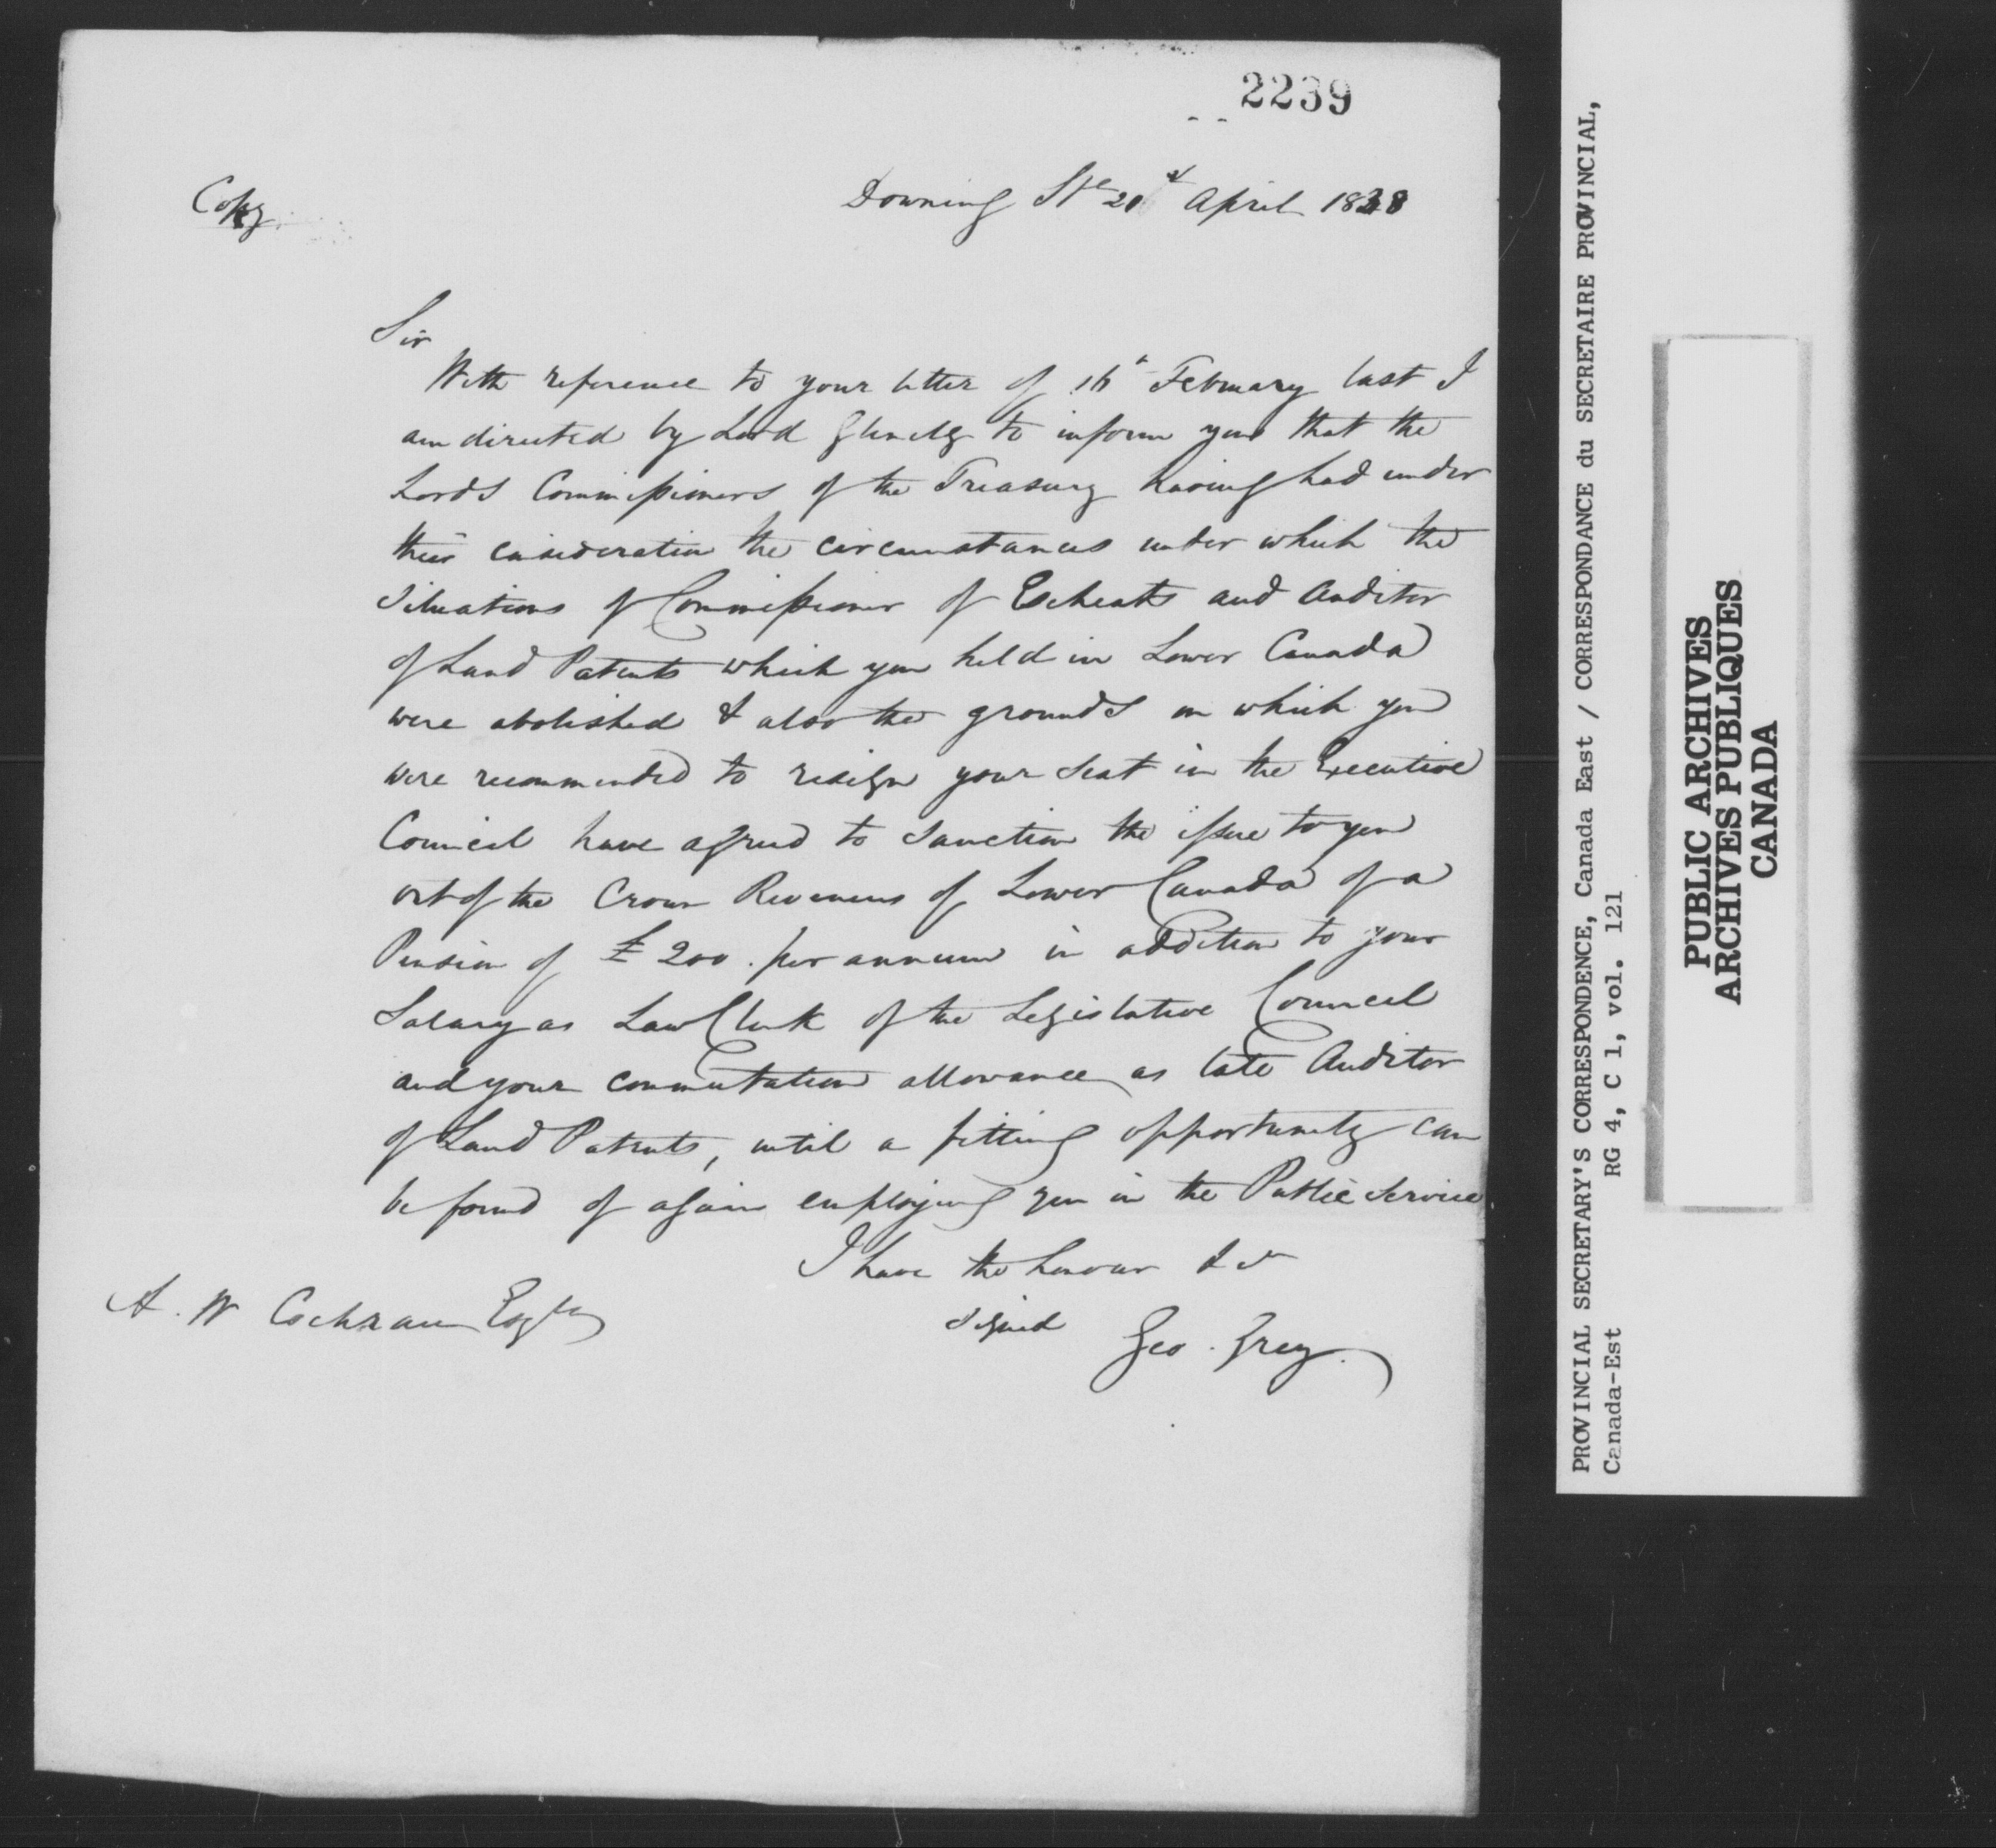 2239
Copy
Downing St 20 April 1838
Sir
With reference to your letter of 16th February last I
am directed by Lord Glenelg to inform you that the
Lords Commissioners of the Treasury having had under
their consideration the circumstances under which the
situations of Commissioner of Escheats and Auditor
of Land Patents which you held in Lower Canada
were abolished & also the grounds on which you
were recommended to resign your seat in the Executive
Council have agreed to sanction the issue to you
out of the Crown Revenues of Lower Canada of a
Pension of £200. per annum in addition to your
Salary as Law Clerk of the Legislative Council
and your commutation allowance as late Auditor
of Land Patents, until a fitting opportunity can
be found of again employing you in the Public Service
I have the honour &c
signed Geo. Grey.
A. W Cochran Esqre
PROVINCIAL SECRETARY'S CORRESPONDENCE, Canada East / CORRESPONDANCE du SECRETAIRE PROVINCIAL,
Canada-Est RG 4, C 1, vol. 121
PUBLIC ARCHIVES
ARCHIVES PUBLIQUES
CANADA